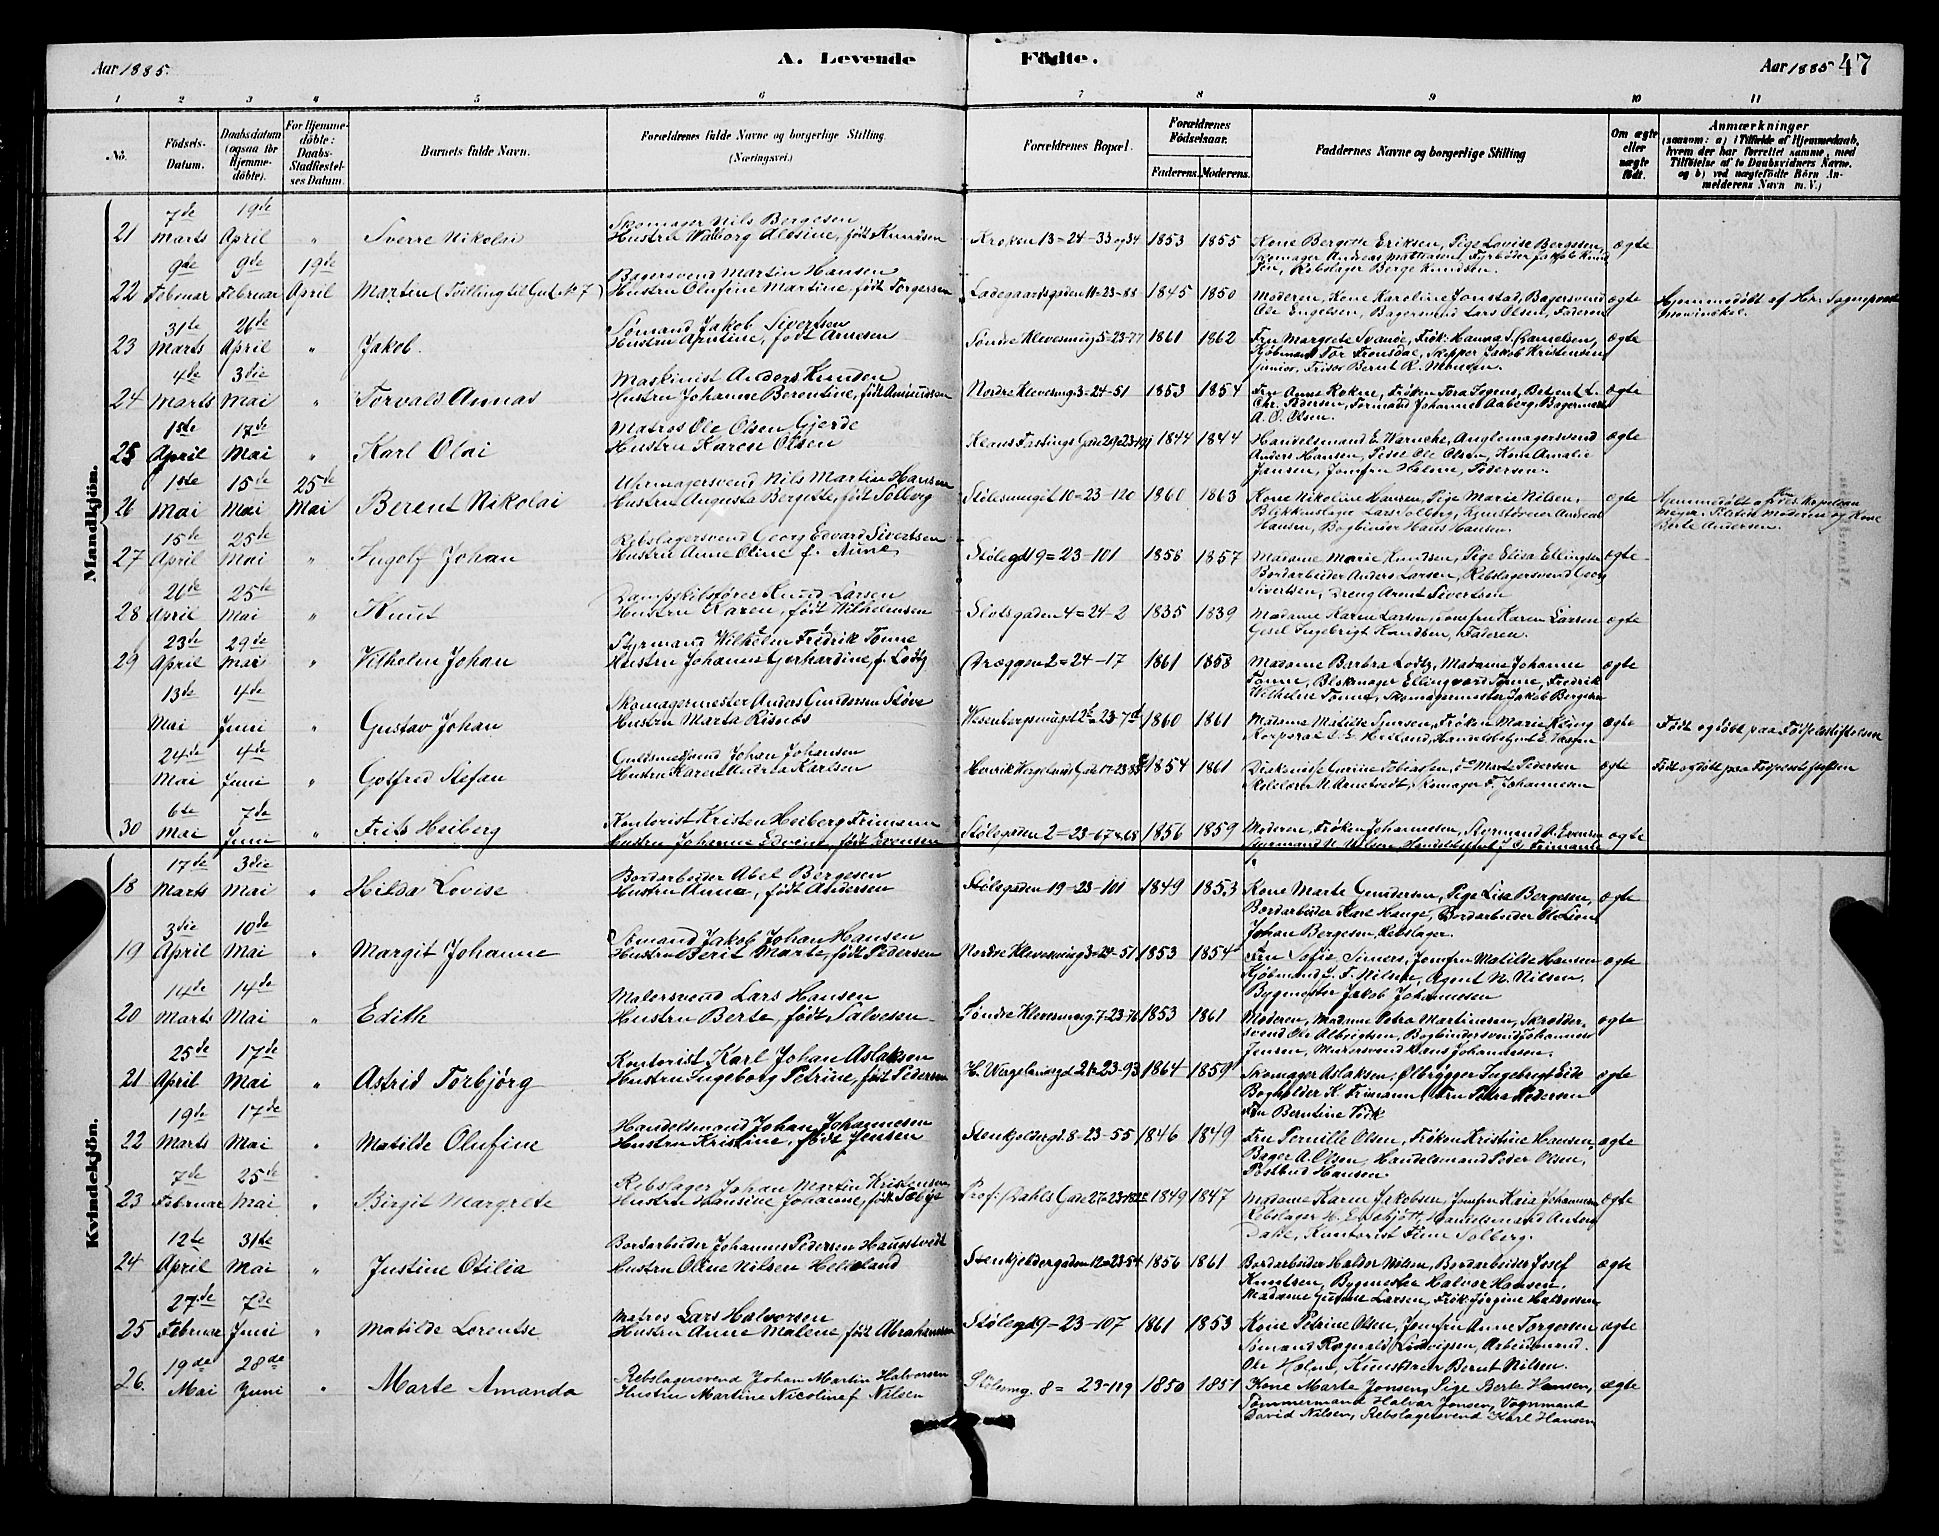 Aar 1885.
A. Levende Födte.
Aar 1885 47
1 2 3 4 5 6 7 8 9 10 11
No.
Födsels-Datum.
Daabsdatum (ogsaa for Hjemmedöbte).
For Hjemmedöbte: Daabs-Stadfæstelses Datum.
Barnets fulde Navn.
Forældrenes fulde Navne og borgerlige Stilling (Næringsvei.)
Forældrenes Bopæl.
Forældrenes Födselsaar.
Faderens. Moderens.
Faddernes Navne og borgerlige Stilling
Om ægte eller uægte födt.
Anmærkninger
(saasom: a) i Tilfælde af Hjemmedaab, hvem der har forrettet samme, med Tilföielse af to Daabsvidners Navne, og b) ved uægtefödte Börn Anmelderens Navn m. V.)
Mandkjön.
21 7de Marts 19de April " Sverre Nikolai
Skomager Nils Bergesen
Hustru Valborg Alesine, født Knudsen
Kroken 13=24-33 og 34 1853 1855
Kone Bergete Eriksen, Pige Lovise Bergesen,
Skomager Andreas Mathiasen, Fyrbøder Jakob Knudsen, Rebslager Berge Knudsen.
ægte
22 9de Februar 9de Februar 19de April Martin (Tvilling til Gut No 7)
Bagersvend Martin Hansen
Hustru Olufine Martine, født Torgersen
Ladegaardsgaden 11-23-88 1845 1850
Moderen, Kone Karoline Jonstad, Bagersvend
Ole Engelsen, Bagersvend Lars Olsen, Faderen
ægte
Hjemmedøbt af Hr. Sogneprest
23 31te Marts 26de April " Jakob.
Sømand Jakob Sivertsen
Hustru født Arnesen
Søndre Klevesmug 5-23-77 1861 1862
Fru Margrete Svanøe, Frøk. Hanna S. Danielsen,
Kjøbmand Tor Fronsdal, Skipper Jakob Kristensen
junior, Frisør Bernt R. Monsen.
ægte
24 4de Marts 3die Mai " Torvald Annas
Maskinist Anders Knudsen
Hustru Johanne Berentine, født Amundsen
Nordre Klevesmug 3-24-51 1853 1854
Fru Anne Frøken Tora
Chr. Pedersen, Formand Johannes Aaberg, Bagermester
A. O. Olsen.
ægte
25 1ste April 17de Mai " Karl Olai
Matros Ole Olsen Gjerde
Hustru Karen Olsen
Klaus Fastings Gade 29-23-191 1844 1844
Handelsmand E. Warncke, Anglemagersvend
Anders Hansen, Peder Ole Olsen, Kone Amalie
Jansen, Jomfru Halene Pedersen.
ægte
26 1ste Mai 15de Mai 25de Mai Berent Nikolai
Uhrmagersvend Nils Martin Hansen
Hustru Augusta Bergitte, født Solberg
Stølesmuget 10-23-120 1860 1863
Kone Nikoline Hansen, Pige Marie Nilsen,
Blikkenslager Lars Solberg, Andreas
Hansen, Bogbinder Hans Hansen.
ægte
Hjemmedøbt af Hr. res. Kapellan
Meyer. Moderen og Kone
Berte Andersen.
27 15de April 25de Mai " Ingolf Johan
Rebslagersvend Georg Edvard Sivertsen
Hustru Anne Oline f. Aune
Stølegd 19=23-101 1856 1857
Madame Marie Knudsen, Pige Elisa Ellingsen
Bordarbeider Anders Larsen, Rebslagersvend Georg
Sivertsen, Dreng Arent Sivertsen
ægte
28 26de April 25de Mai " Knut
Dampskibsfører Knud Larsen
Hustru Karen, født Wilhelmsen
Slotsgaden 4=24-2 1835 1839
Madame Karen Larsen, Jomfru Karen Larsen
Gesel Ingebrigt Knudsen, Faderen.
ægte
29 23de April 29de Mai " Vilhelm Johan
Styrmand Wilhelm Fredrik Tonne
Hustru Johanne Gerhardine, f. Lodtz
Dræggen 2=24-17 1861 1858
Madame Barbra Lodtz, Madame Johanne
Tonne, Blokmager Ellingvard Tonne, Fredrik
Wilhelm Tonne, Skomagermester Jakob Bergesen
ægte
13de Mai 4de Juni " Gustav Johan
Skomagermester Anders Gundersen Støve
Hustru Marta Risnes
Wesenbergsmuget 2b-23-7d 1860 1861
Madame Matilde Frøken Marie Kling
Korporal Heiland, Handelsbetjent E.
ægte
Født og døbt paa Fødselsstiftelsen
24de Mai 4de Juni " Gotfred Stefan
Guldsmedsvend Johan Johansen
Hustru Karen Andrea Karlsen
Henrik Wergelands Gade 17-23-88 1854 1861
Diakonisse Gurine Tobiassen, do Marte Pedersen
Skolelærer N. Arnetvedt, Skomager F. Johannesen
ægte
Født og døbt paa Fødselsstiftelsen
30 6te Mai 7de Juni " Frits Heiberg
Kontorist Kristen Heiberg Frimann
Hustru Johanne født Evensen
Stølegaden 2=23-67 & 68 1856 1859
Moderen, Frøken Johannesen, Styrmand A. Evensen
Styrmand N. Nilsen, Handelsfuldm. J. C. Frimann
ægte
Kvindekjön.
18 17de Marts 3die Mai " Hilda Lovise
Bordarbeider Abel Bergesen
Hustru Anne, født Andersen
Stølegaden 19-23-101 1849 1853
Kone Marte Gundersen, Pige Lisa Bergesen,
Bordarbeider Karl Hauge, Bordarbeider Ole Lien
Johan Bergesen, Rebslager.
ægte
19 3die April 10de Mai " Margit Johanne
Sømand Jakob Johan Hansen
Hustru Berit Marte, født Pedersen
Nordre Klevesmug 3-24-51 1853 1854
Fru Sofie Simers, Jomfru Matilde Hansen
Kjøbmand S. F. Nilsen, Agent N. Nilsen,
Bygmester Jakob Johannesen
ægte
20 14de Marts 14de Mai " Edith
Malersvend Lars Hansen
Hustru Berte, født Salvesen
Søndre Klevesmug 7-23-76 1853 1861
Moderen, Madame Petra Martinsen, Skræddersvend Ole Albrigtsen, Bogbindersvend Johannes
Jensen, Murersvend Hans Johannesen.
ægte
21 25de April 17de Mai " Astrid Torbjörg
Kontorist Karl Johan Aslaksen
Hustru Ingeborg Petrine, født Pedersen
H. Wergelandsgd 21-23-93 1864 1859
Skomager Aslaksen, Ølbrygger Ingebrigt Eide
Bogholder K. Frimann, Fru Petra Pedersen
Fru Berntine Fock
ægte
22 19de Marts 17de Mai " Matilde Olufine
Handelsmand Johan Johannesen
Hustru Kristine, født Jensen
Stenkjeldergd. 8-23-55 1846 1849
Fru Pernille Olsen, Frøken Kristine Hansen,
Bager A. Olsen, Handelsmand Peder Olsen,
Postbud Hansen
ægte
23 7de Februar 25de Mai " Birgit Margrete
Rebslager Johan Martin Kristensen
Hustru Hansine Johanne, født Sæbye
Prof. Dahls Gade 27-23-182 1849 1847
Madame Karen Jakobsen, Jomfru Kaia Johannesen
Rebslager H. Handelsmand Anton
Dahl, Kontorist Finn Solberg.
ægte
24 12te April 31te Mai " Justine Otilia
Bordarbeider Johannes Pedersen Haugstvedt
Hustru Oline Nilsen Helleland
Stenkjeldergaden 12=23-54 1856 1861
Bordarbeider Haldor Nilsen, Bordarbeider Josef
Knudsen, Bygmester Halvor Hansen,
Madame Gurine Larsen, Frøk. Jørgine Halvorsen
ægte
25 27de Februar 7de Juni " Matilde Lorentse
Matros Lars Halvorsen
Hustru Anne Malene, født Abrahamsen
Stølegd 9-23-107 1861 1853
Kone Petrine Olsen, Jomfru Anne Torgersen
Sømand Ragnald Lodvigsen, Arbeidsmand
Ole Holm, Kunstdreier Bernt Nilsen.
ægte
26. 19de Mai 28de Juni " Marte Amanda
Rebslagersvend Johan Martin Halvorsen
Hustru Martine Nicoline f. Nilsen
Stølesmg. 8=23-119 1850 1851
Kone Marte Jonsen, Pige Berte Hansen,
Tømmermand Halvar Jonsen, Vognmand
David Nilsen, Rebslagersvend Karl Hansen
ægte